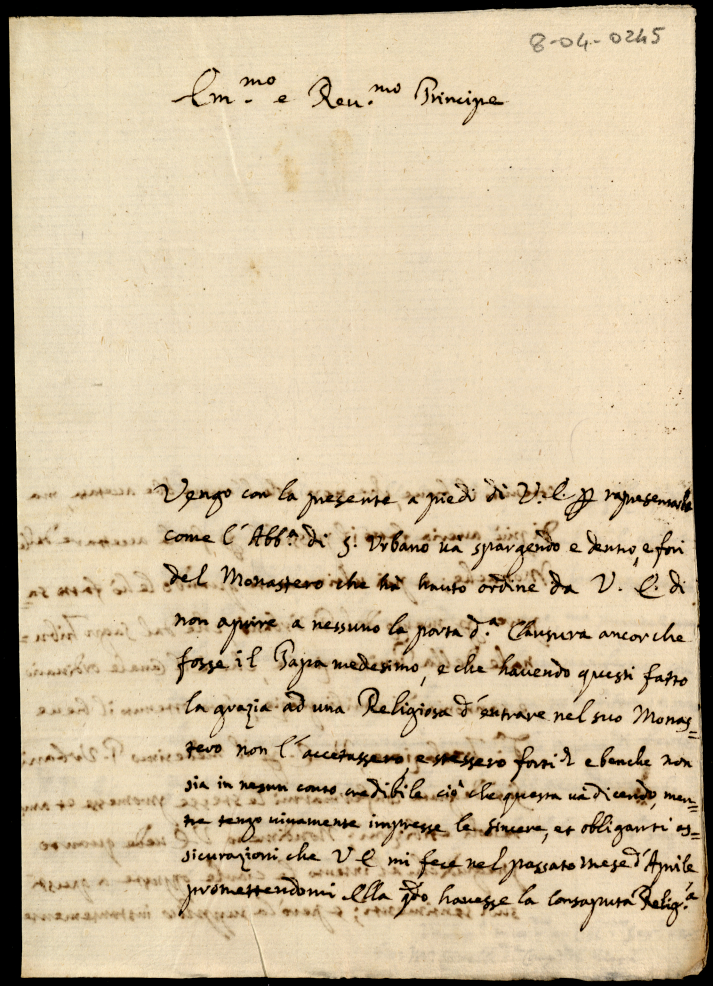 8-04-0245
Em.mo e Reu.mo Principe
Vengo con la presente a piedi di V. E. p rapresentarle
come l'Abb.a di S. Vrbano ua spargendo e dentro, e fori
del Monastero che hà hauto ordine da V. E. di
non aprire a nessuno la porta d.a Clausura ancor che
fosse il Papa medesimo, e che hauendo questi fatto
la grazia ad una Religiosa d'entrare nel suo Monas=
tero non l'accettassero, e stessero forti e benche non
sia in nesun conto credibile ciò che questa uà dicendo, men=
tre tengo uiuamente impresse le sincere, et obliganti as=
sicurazioni che V E mi fece nel passato mese d'Aprile
promettendomi Ella qdo hauesse la consaputa Relig.a